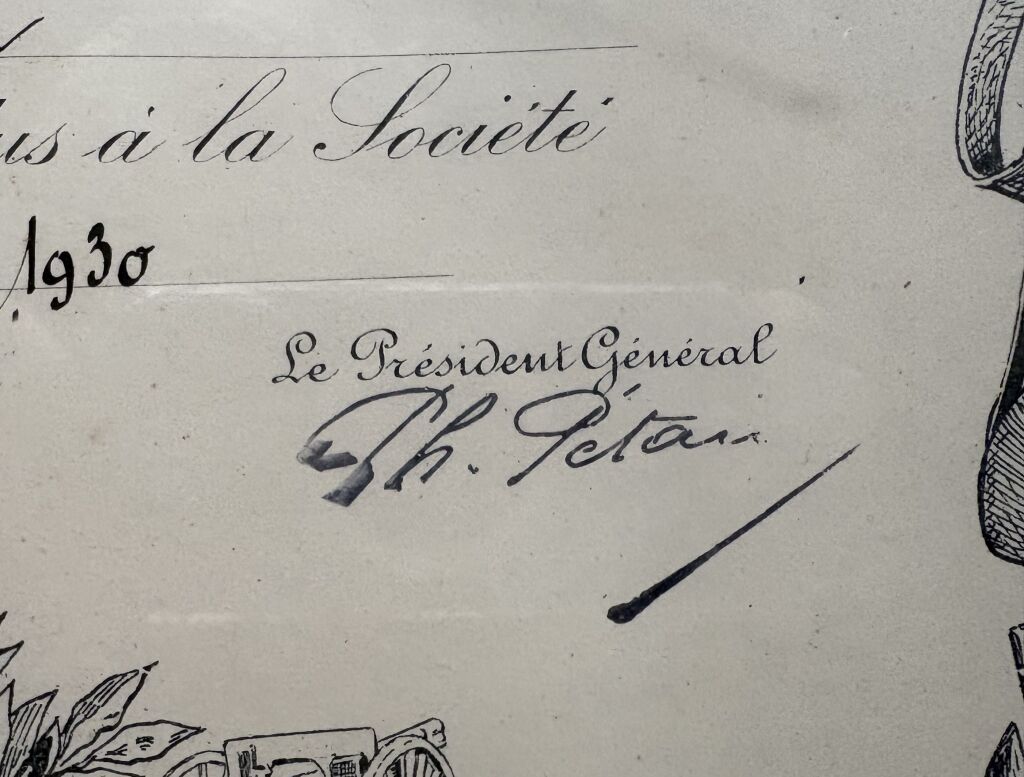 à la Société
1930
Le Président Général
Ph. Pétain